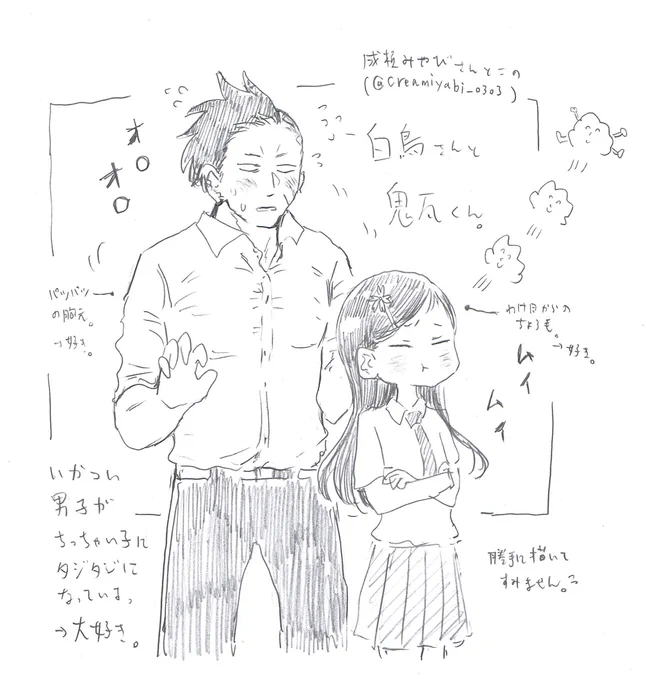 成瀬みやびさんとこの
(@creamiyabi_0303)
白鳥さんと
鬼瓦くん。
オロ
オロ
パツパツ
の胸元。
→好き。
わけ目からの
ちょろ毛。
→好き。
ムイ
ムイ
いかつい
男子が
ちっちゃい子に
タジタジに
なっている。
→大好き。
勝手に描いて
すみません。